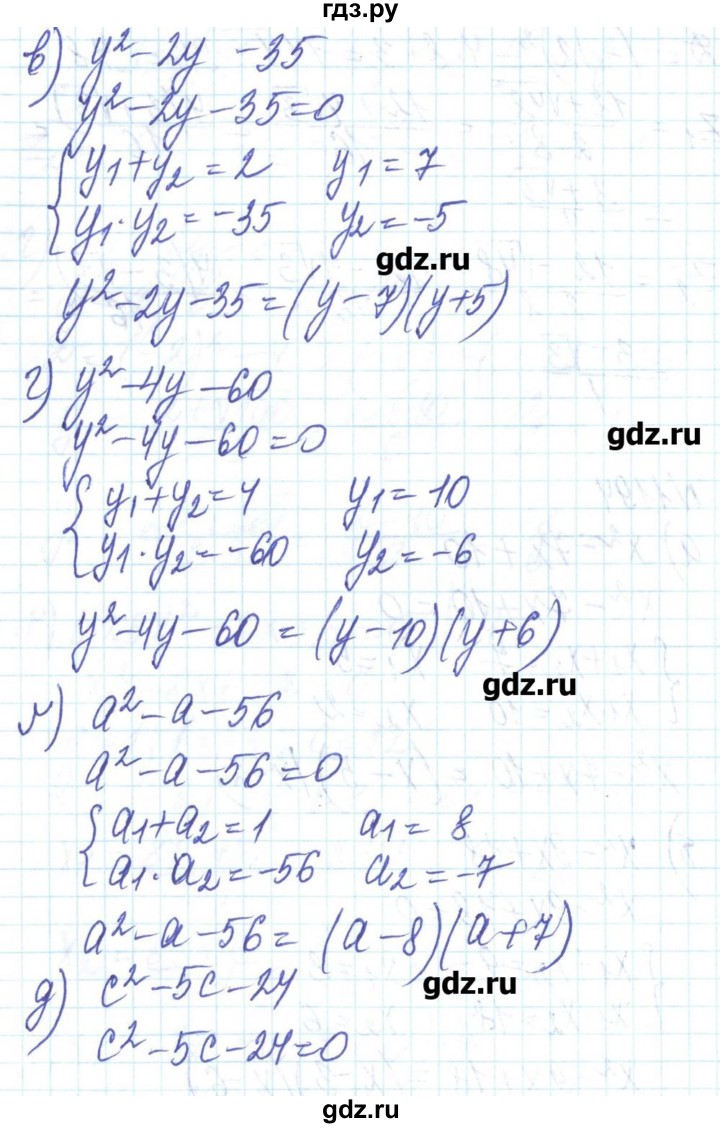 гдз.ру
в) y² - 2y - 35
y² - 2y - 35 = 0
{ y₁ + y₂ = 2 y₁ = 7
y₁ · y₂ = -35 y₂ = -5
gdz.ru
y² - 2y - 35 = (y - 7)(y + 5)
г) y² - 4y - 60
y² - 4y - 60 = 0
gdz.ru
{ y₁ + y₂ = 4 y₁ = 10
y₁ · y₂ = -60 y₂ = -6
y² - 4y - 60 = (y - 10)(y + 6)
gdz.ru
м) a² - a - 56
a² - a - 56 = 0
{ a₁ + a₂ = 1 a₁ = 8
a₁ · a₂ = -56 a₂ = -7
a² - a - 56 = (a - 8)(a + 7)
gdz.ru
д) c² - 5c - 24
c² - 5c - 24 = 0
gdz.ru